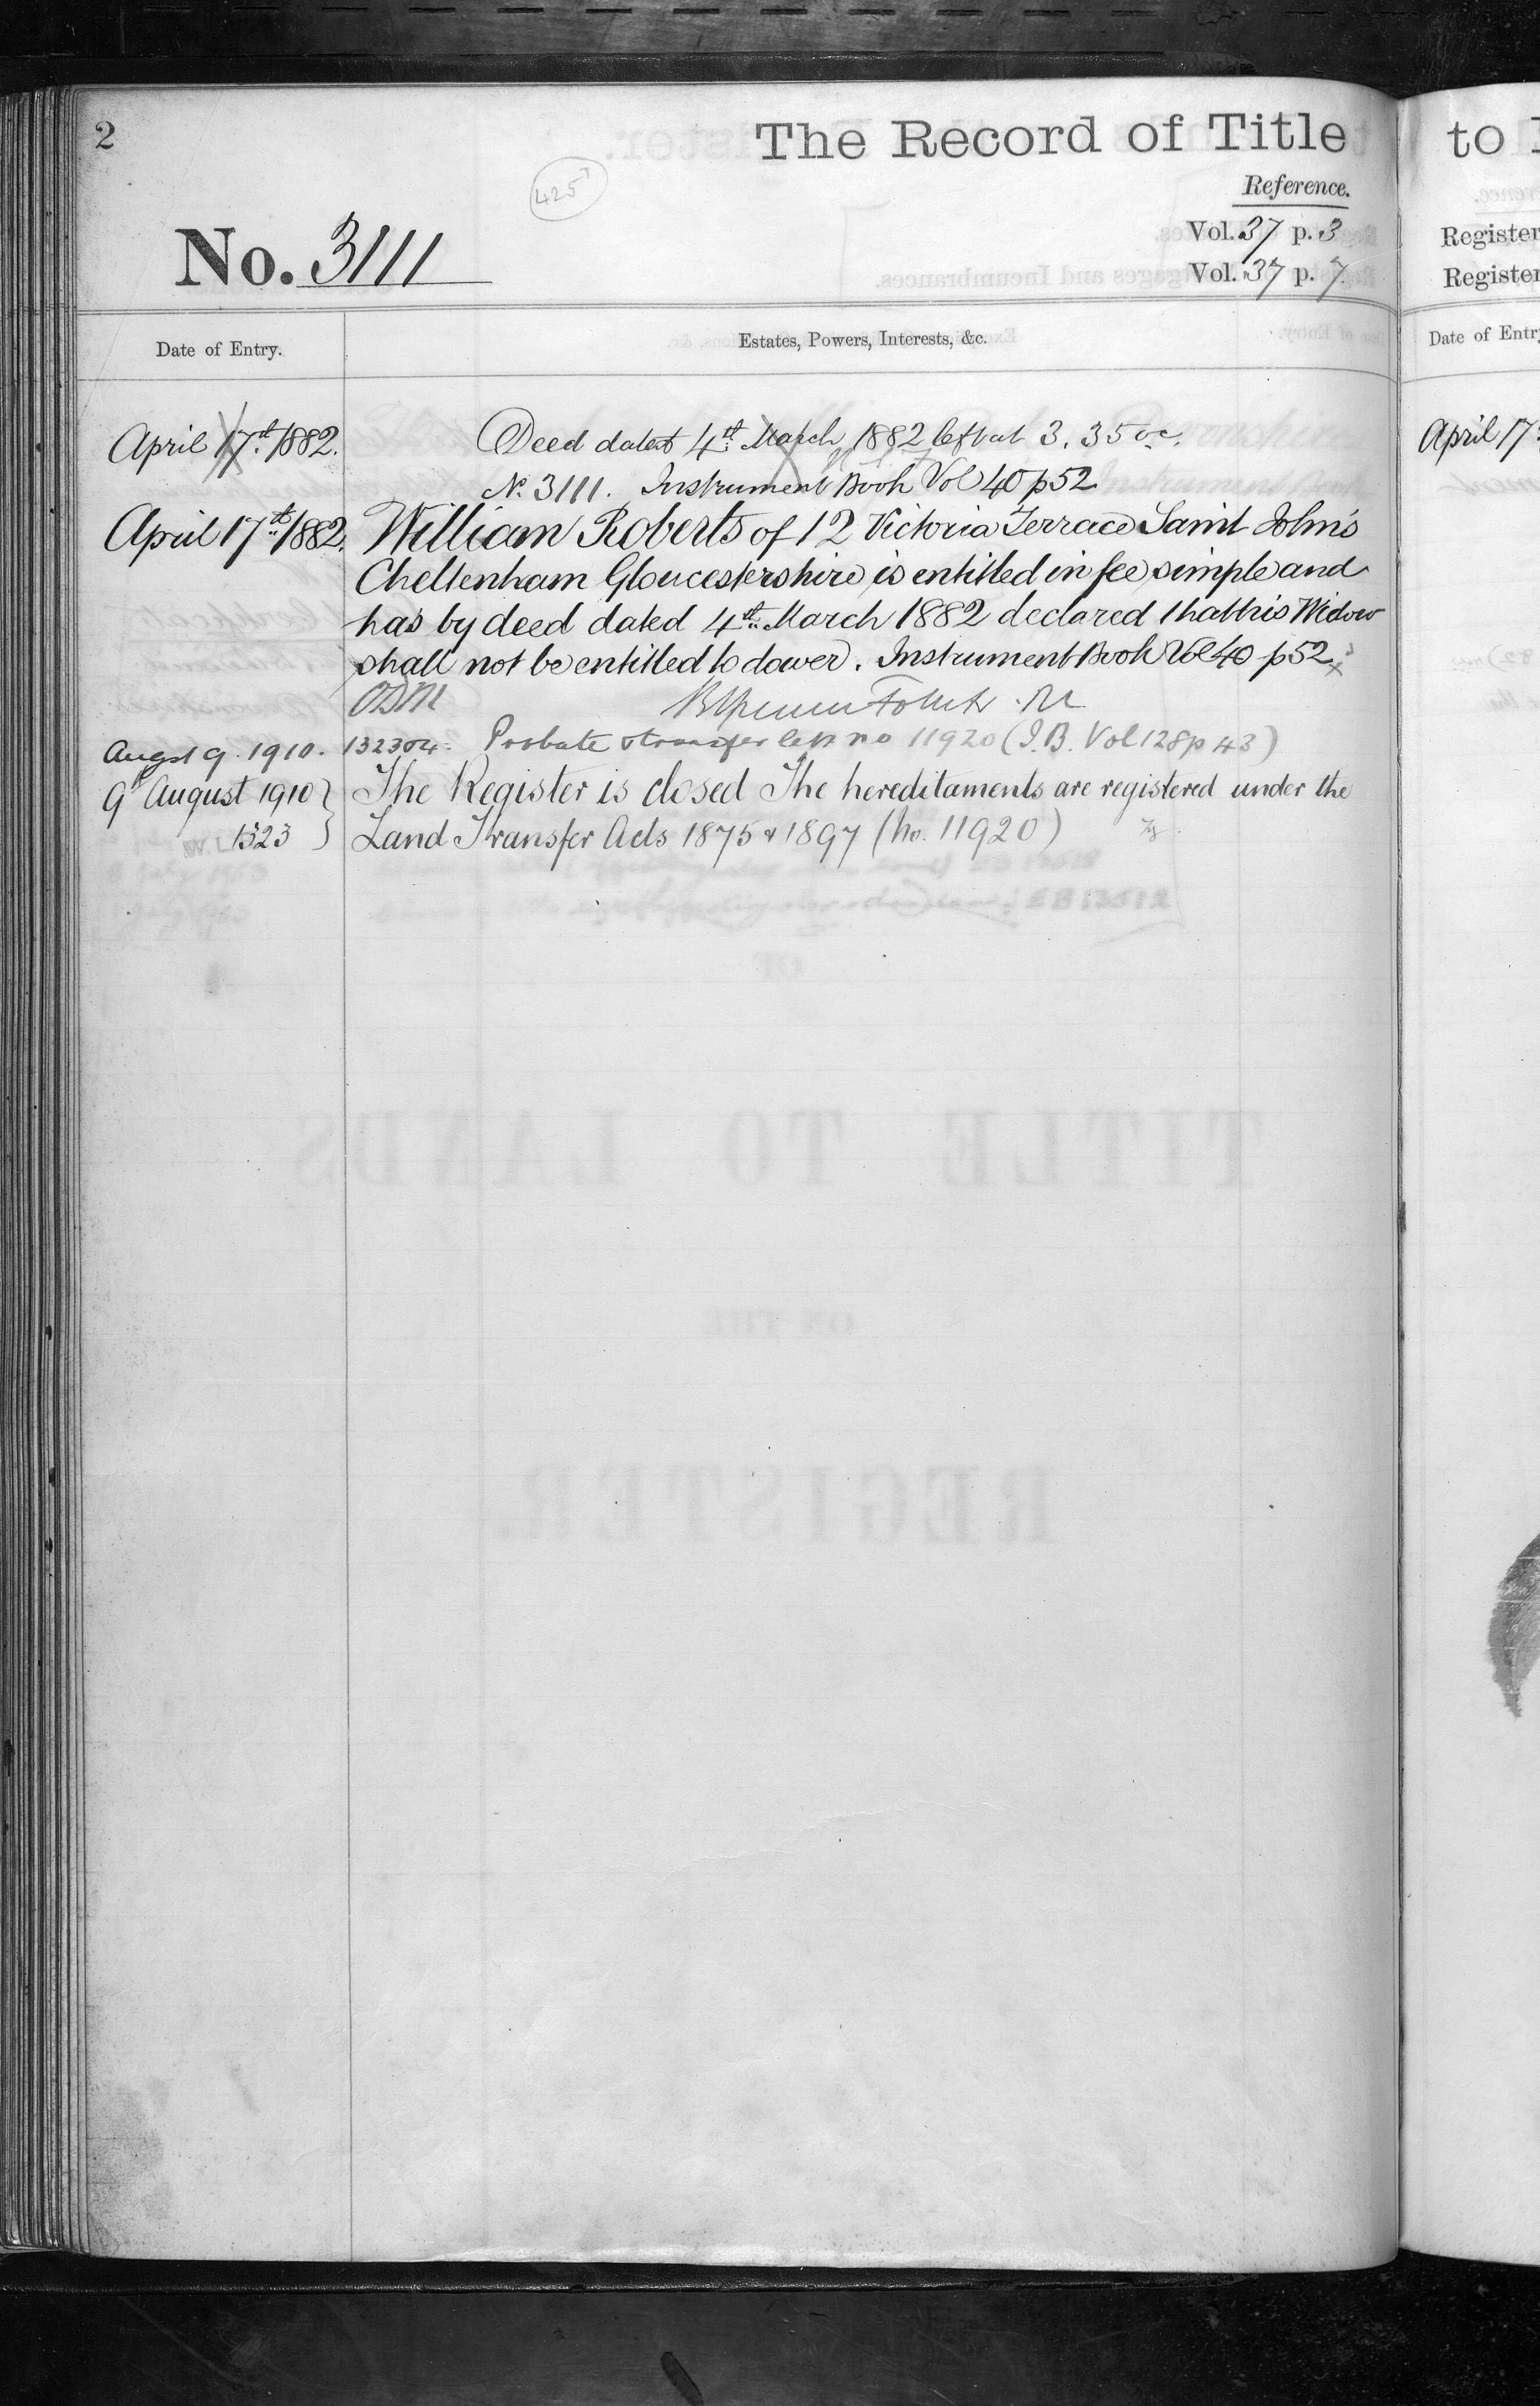 2
The Record of Title
425
Reference.
No. 3111
Vol. 37 p. 3
Vol. 37 p. 7
Date of Entry.
Estates, Powers, Interests, &c.
April 17th 1882. Deed dated 4th March 1882 left at 3.35 oc.
No. 3111. Instrument Book Vol 40 p 52
April 17th 1882. William Roberts of 12 Victoria Terrace Saint John's
Cheltenham Gloucestershire is entitled in fee simple and
has by deed dated 4th March 1882 declared that his Widow
shall not be entitled to dower. Instrument Book Vol 40 p 52
ODM
Augst 9. 1910. 132304. Probate & transfer left no 11920 (I.B. Vol 128 p 43)
9 August 1910 The Register is closed The hereditaments are registered under the
1323 Land Transfer Acts 1875 & 1897 (No. 11920)
to
Register
Register
Date of Entry
April 17